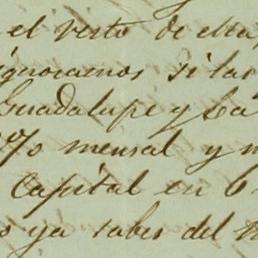 el resto de
ignoramos si las
Guadalupe y la
% mensual y
Capital en 6
ya sabes del